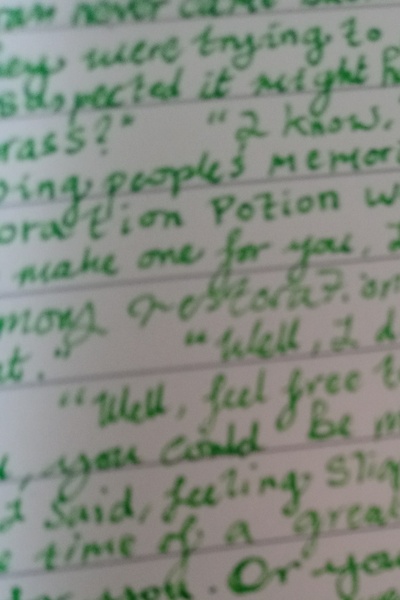 never came
were trying to
suspected it might
rass?" "I know.
ing people's memor
oration Potion w
make one for you, I
mory restoration
t." "Well, I d
"Well, feel free t
, you could be m
I said, feeling slig
time of a grea
for you. Or you